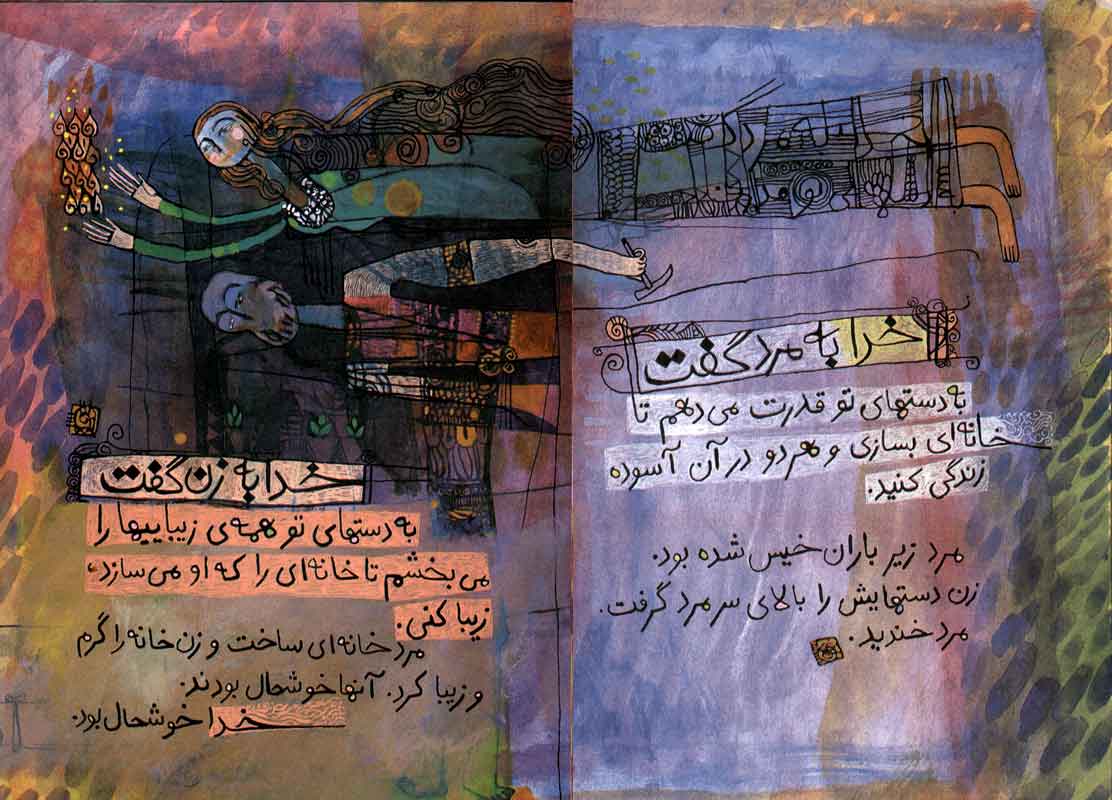 خدا به مرد گفت
به دستهای تو قدرت می‌دهم تا
خانه‌ای بسازی و هر دو در آن آسوده
زندگی کنید.
مرد زیر باران خیس شده بود.
زن دستهایش را بالای سر مرد گرفت.
مرد خندید.
خدا به زن گفت
به دستهای تو همه‌ی زیباییها را
می بخشم تا خانه‌ای را که او می سازد،
زیبا کنی.
مرد خانه‌ای ساخت و زن خانه را گرم
و زیبا کرد. آنها خوشحال بودند.
خدا خوشحال بود.